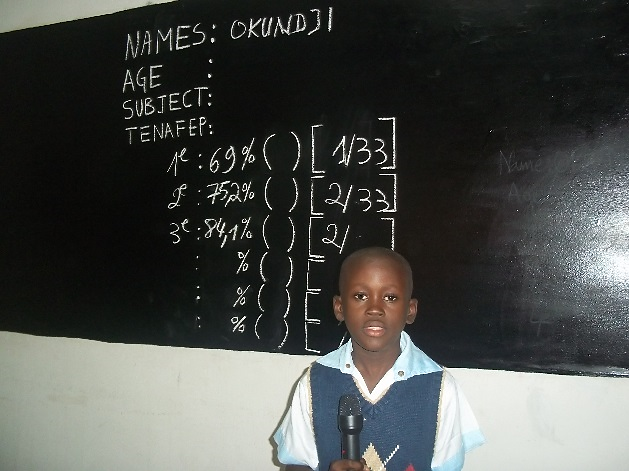 NAMES: OKUNDJI
AGE :
SUBJECT:
TENAFEP:
1e : 69% ( ) [ 1/33 ]
2e : 75,2% ( ) [ 2/33 ]
3e : 84,1% ( ) [ 2/ ]
: % ( ) [
: % ( ) [
: % ( ) [ /